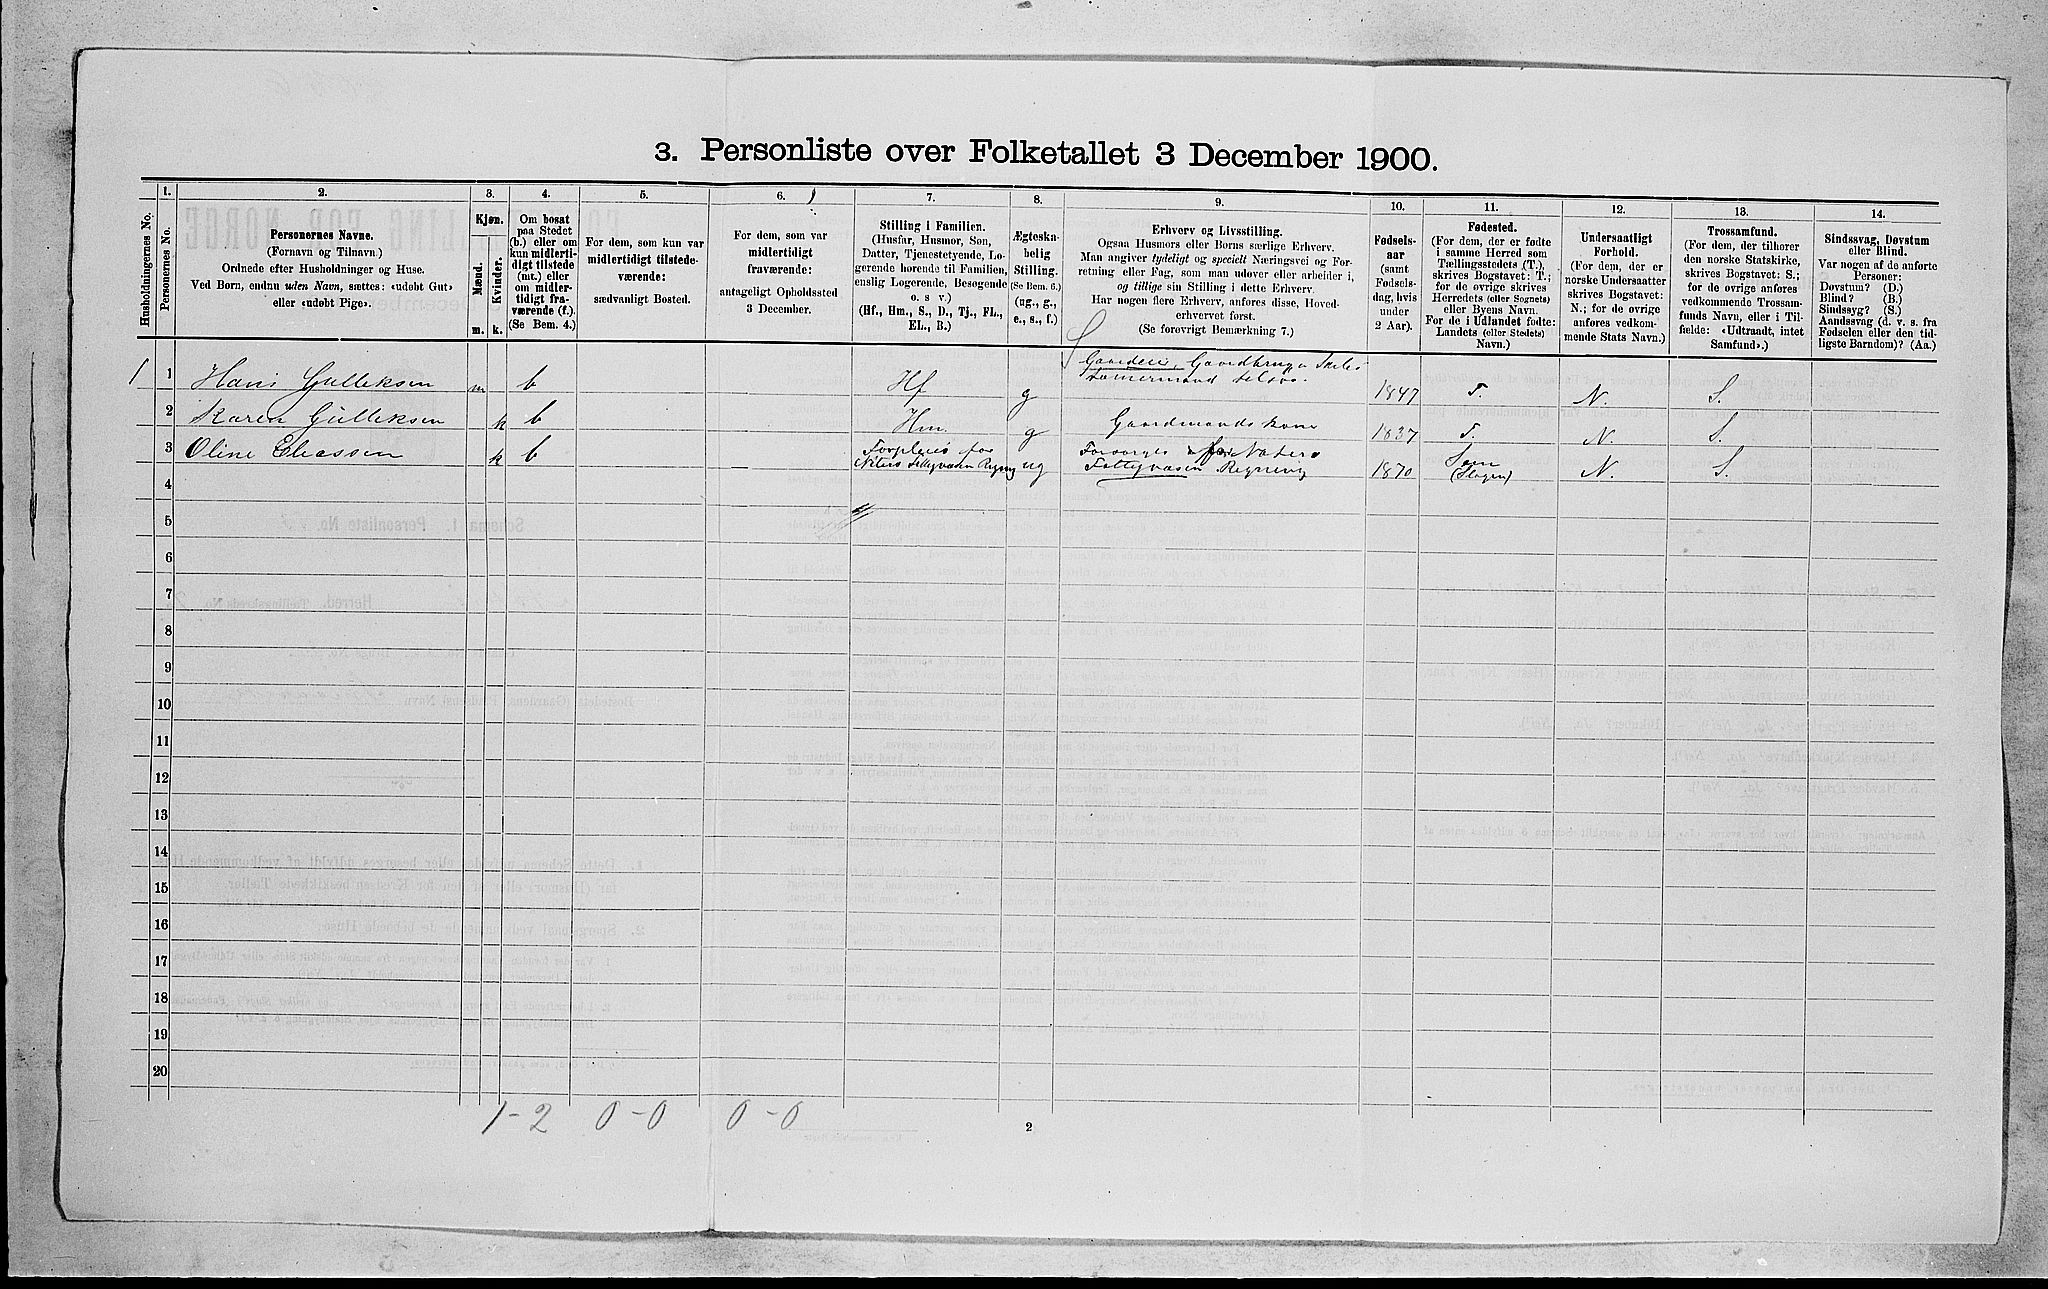 3. Personliste over Folketallet 3 December 1900.
Husholdningernes No.
1.
Personernes No.
2.
Personernes Navne.
(Fornavn og Tilnavn.)
Ordnede efter Husholdninger og Huse.
Ved Børn, endnu uden Navn, sættes: «udøbt Gut»
eller «udøbt Pige».
3.
Kjøn.
Mænd.
Kvinder.
m. k.
4.
Om bosat
paa Stedet
(b.) eller om
kun midlerti-
digt tilstede
(mt.) eller
om midler-
tidigt fra-
værende (f.).
(Se Bem. 4.)
5.
For dem, som kun var
midlertidigt tilstede-
værende:
sædvanligt Bosted.
6.
For dem, som var
midlertidigt
fraværende:
antageligt Opholdssted
3 December.
7.
Stilling i Familien.
(Husfar, Husmor, Søn,
Datter, Tjenestetyende, Lo-
gerende hørende til Familien,
enslig Logerende, Besøgende
o. s v.)
(Hf., Hm., S., D., Tj., FL.,
EL., B.)
8.
Ægteska-
belig
Stilling.
(Se Bem. 6.)
(ug., g.,
e., s., f.)
9.
Erhverv og Livsstilling.
Ogsaa Husmors eller Børns særlige Erhverv.
Man angiver tydeligt og specielt Næringsvei og For-
retning eller Fag, som man udøver eller arbeider i,
og tillige sin Stilling i dette Erhverv.
Har nogen flere Erhverv, anføres disse, Hoved-
erhvervet først.
(Se forøvrigt Bemærkning 7.)
10.
Fødsels-
aar
(samt
Fødsels-
dag, hvis
under
2 Aar).
11.
Fødested.
(For dem, der er fødte
i samme Herred som
Tællingsstedets (T.),
skrives Bogstavet: T.;
for de øvrige skrives
Herredets (eller Sognets)
eller Byens Navn.
For de i Udlandet fødte:
Landets (eller Stedets)
Navn.)
12.
Undersaatligt
Forhold.
(For dem, der er
norske Undersaatter
skrives Bogstavet:
N.; for de øvrige
anføres vedkom-
mende Stats Navn.)
13.
Trossamfund.
(For dem, der tilhører
den norske Statskirke,
skrives Bogstavet: S.;
for de øvrige anføres
vedkommende Trossam-
funds Navn, eller i Til-
fælde: «Udtraadt, intet
Samfund».)
14.
Sindssvag, Døvstum
eller Blind.
Var nogen af de anførte
Personer:
Døvstum? (D.)
Blind? (B.)
Sindssyg? (S.)
Aandssvag (d. v. s. fra
Fødselen eller den tid-
ligste Barndom)? (Aa.)
1 1 Hans Gulleksen m b Hf g Gaardeier, Gaardbrug
tømermand 1847 T. N. S.
2 Karen Gulleksen k b Hm. g Gaardmandskone 1837 T. N. S.
3 Oline Eliassen k b ug Forsorges for
Fattigvæsen Regning 1870 Sem
(Slagen) N. S.
4
5
6
7
8
9
10
11
12
13
14
15
16
17
18
19
20
1-2 0-0 0-0
2